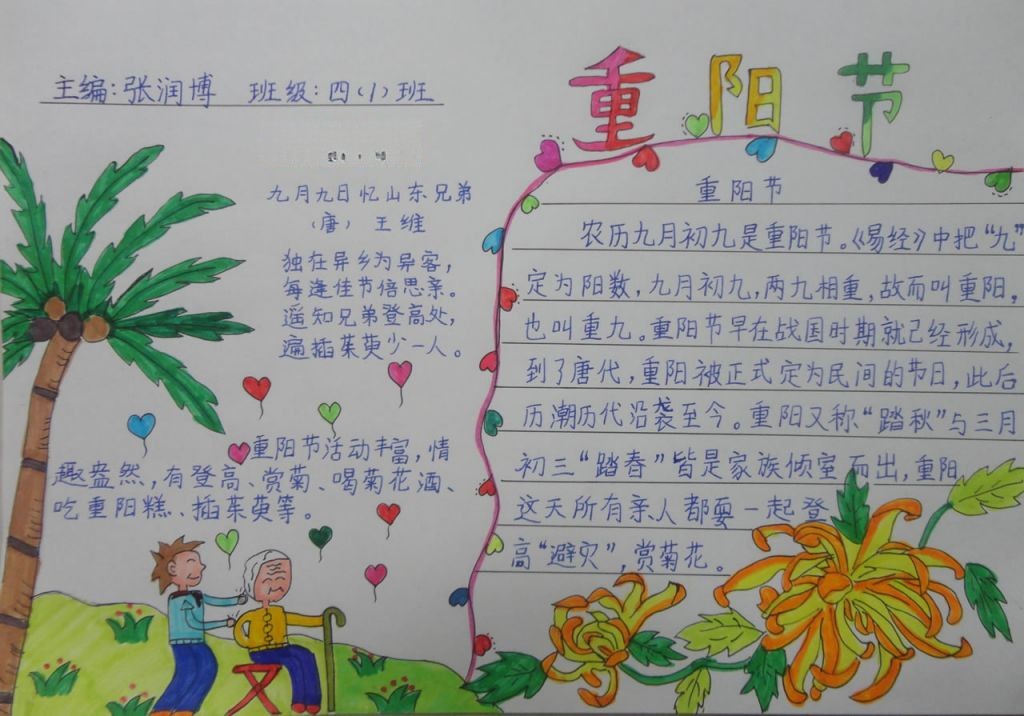 主编:张润博 班级:四(1)班
重阳节
九月九日忆山东兄弟
(唐) 王维
独在异乡为异客,
每逢佳节倍思亲。
遥知兄弟登高处,
遍插茱萸少一人。
重阳节活动丰富,情
趣盎然,有登高、赏菊、喝菊花酒、
吃重阳糕、插茱萸等。
重阳节
农历九月初九是重阳节。《易经》中把“九”
定为阳数,九月初九,两九相重,故而叫重阳,
也叫重九。重阳节早在战国时期就已经形成,
到了唐代,重阳被正式定为民间的节日,此后
历潮历代沿袭至今。重阳又称“踏秋”与三月
初三“踏春”皆是家族倾室而出,重阳
这天所有亲人都要一起登
高“避灾”,赏菊花。